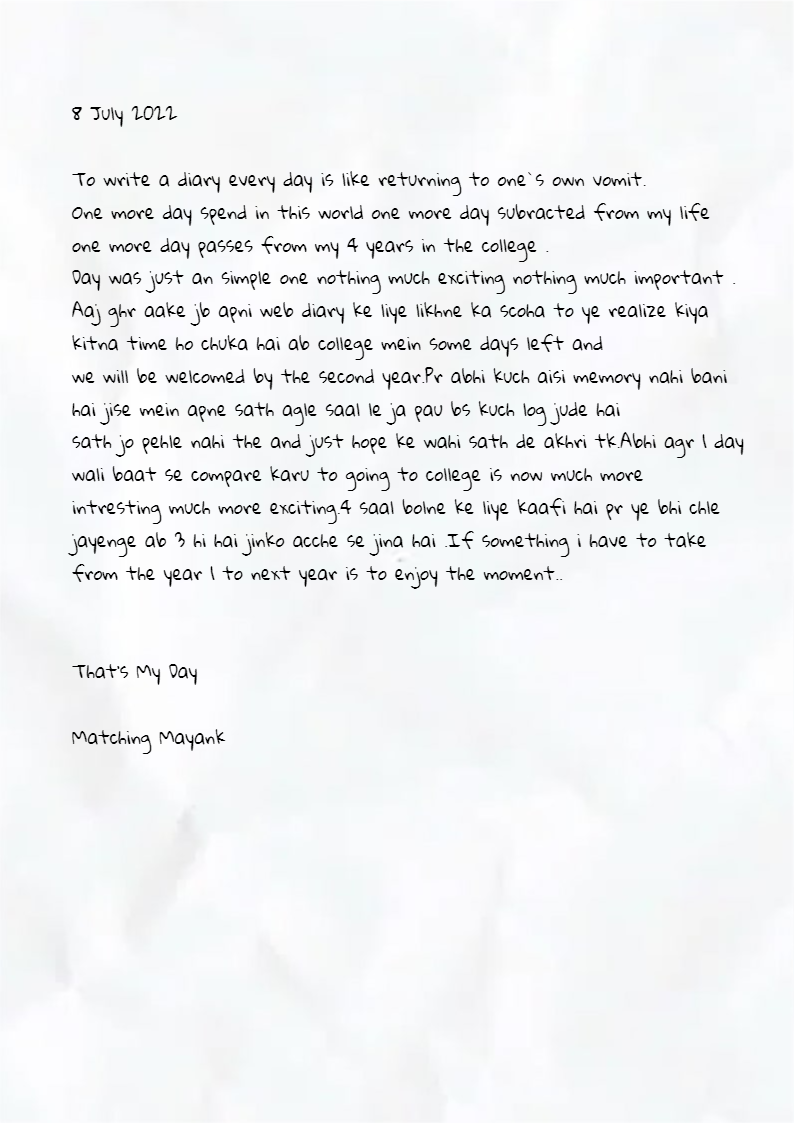 8 July 2022
To write a diary every day is like returning to one`s own vomit.
One more day spend in this world one more day subracted from my life
one more day passes from my 4 years in the college .
Day was just an simple one nothing much exciting nothing much important .
Aaj ghr aake jb apni web diary ke liye likhne ka scoha to ye realize kiya
kitna time ho chuka hai ab college mein some days left and
we will be welcomed by the second year.Pr abhi kuch aisi memory nahi bani
hai jise mein apne sath agle saal le ja pau bs kuch log jude hai
sath jo pehle nahi the and just hope ke wahi sath de akhri tk.Abhi agr 1 day
wali baat se compare karu to going to college is now much more
intresting much more exciting.4 saal bolne ke liye kaafi hai pr ye bhi chle
jayenge ab 3 hi hai jinko acche se jina hai .If something i have to take
from the year 1 to next year is to enjoy the moment..
That's My Day
Matching Mayank